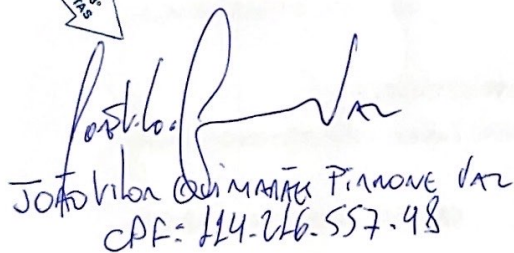 TAS
VAZ
JOÃO VITOR GUIMARÃES PIRRONE VAZ
CPF: 114.216.557.48